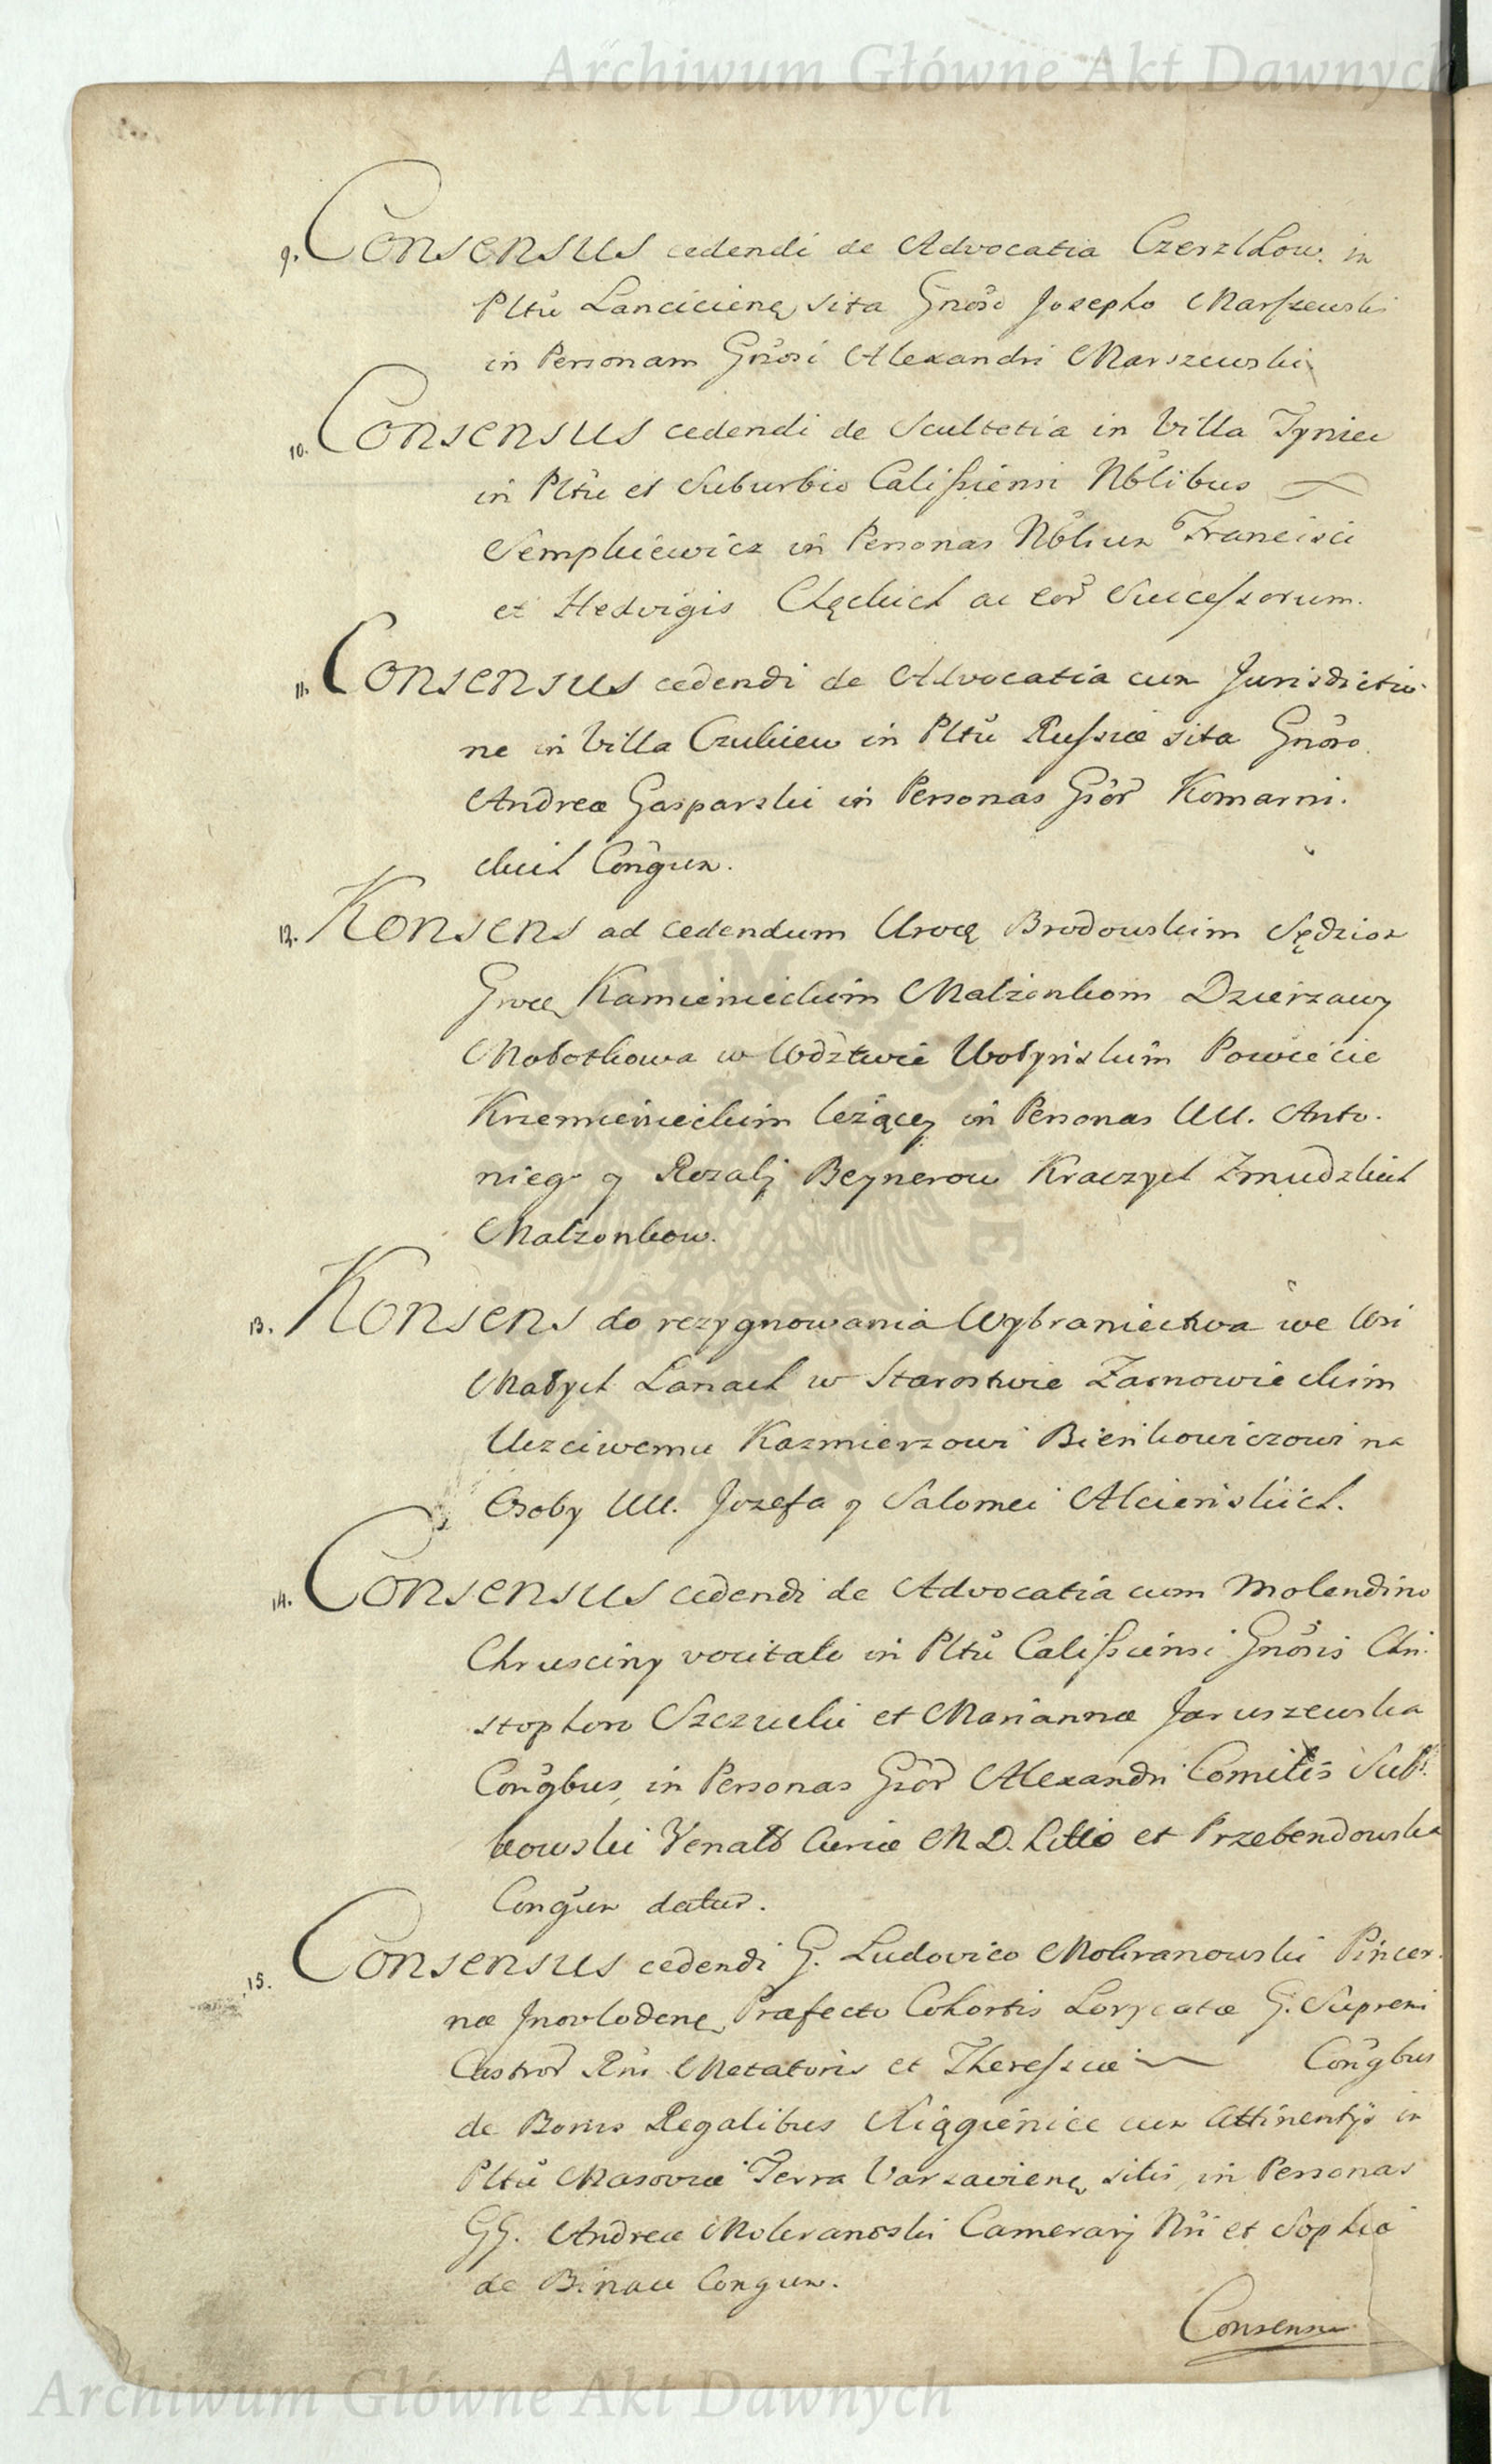 Archiwum Główne Akt Dawnych
9. Consensus cedendi de Advocatia Czerzkow. in
Pltũ Lancicienę sita Gnõso Josepho Marszewski
in Personam Gnõsi Alexandri Marszewski
10. Consensus cedendi de Scultetia in Villa Tyniec
in Pltũ et Suburbio Calissiensi Nõlibus
Sempkiewicz in Personas Nõlium Francisci
et Hedvigis Chęckich ac eor̃ Successorum.
11. Consensus cedendi de Advocatia cum Jurisdictio-
ne in Villa Czukiew in Pltũ Russiæ sita Gnõso
Andreæ Gasparski in Personas Gsõr̃ Komarni-
ckich Conĝum.
12. Konsens ad cedendum Urocę Brodowskim Sędziom
Grocę Kamienieckim Małzonkom Dzierzawy
Mołotkowa w Wdztwie Wołynskim Powiecie
Krzemienieckim leżącey in Personas UU. Anto-
niego y Rozalj Beynerow Kraczych Zmudzkich
Malzonkow.
13. Konsens do rezygnowania Wybraniectwa we Wsi
Małych Łanach w Starostwie Zarnowieckim
Uczciwemu Kazmierzowi Bieńkowiczowi na
Osoby UU. Jozefa y Salomei Alcieńskich.
14. Consensus cedendi de Advocatia cum Molendino
Chrusciny vocitato in Pltũ Calissiensi Gnõsis Chri-
stophoro Szczucki et Mariannæ Jaruszewska
Conĝbus, in Personas Gsõr̃ Alexandri Comitis Suł-
kowski Venat̃ Curiæ M. D. Litto et Przebendowska
Conĝum datur̃.
15. Consensus cedendi G. Ludovico Mokranowski Pincer-
næ Jnovlodenę Præfecto Cohortis Lorycatæ G. Supremi
Castror̃ Rni Metatoris et Theressiæ Conĝbus
de Bonis Regalibus Xiągienice cum Attinentijs in
Pltũ Masoviæ Terra Varsavienę sitis, in Personas
GG. Andreæ Mokranoski Camerarj Nri et Sophiæ
de Binau Congum.
Consensus
Archiwum Główne Akt Dawnych